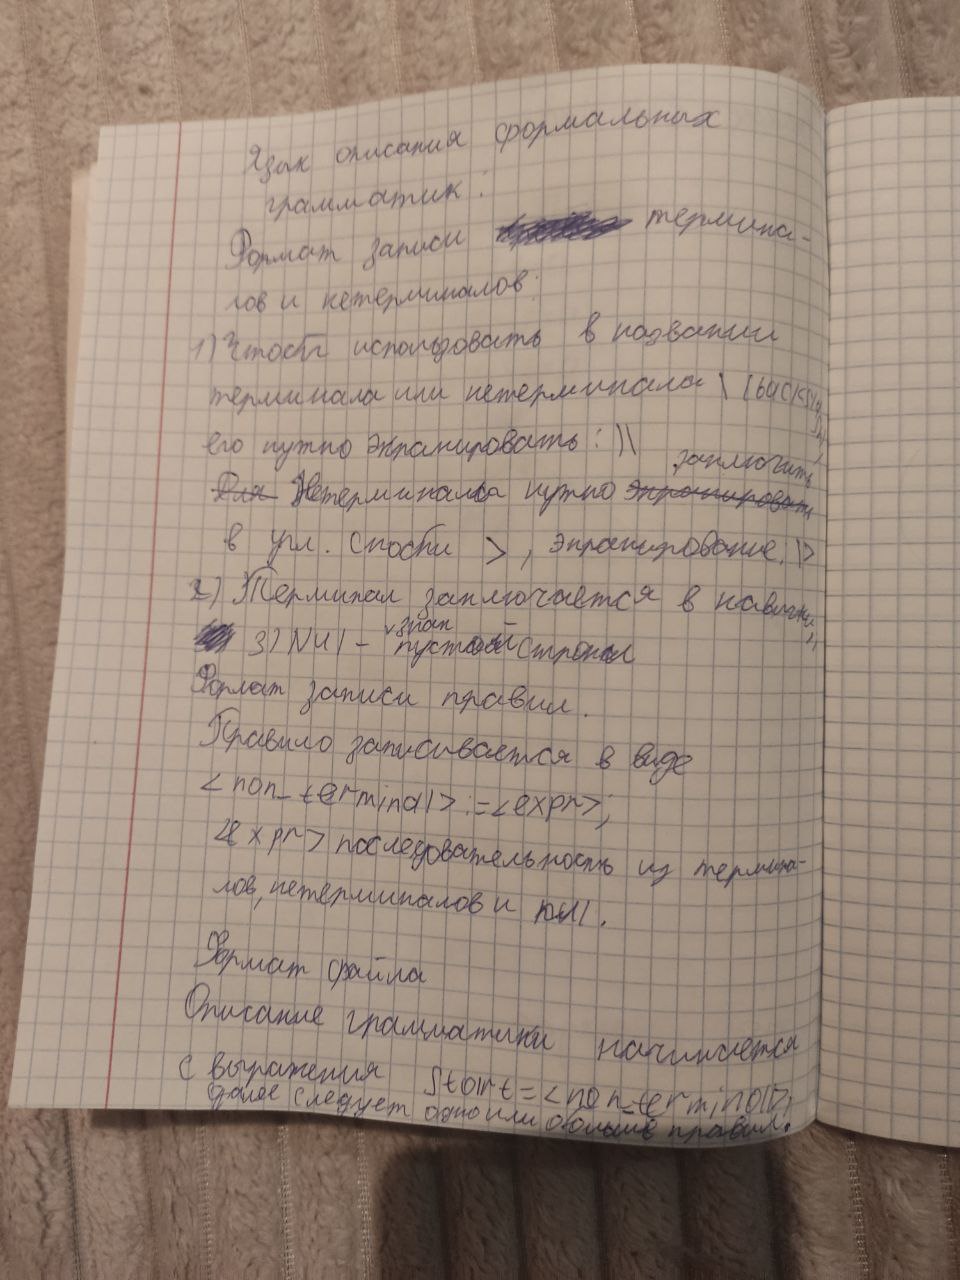 Язык описания формальных
грамматик:
Формат записи термина-
лов и нетерминалов:
1) Чтобы использовать в названии
терминала или нетерминала \ (backslash)
его нужно экранировать: \\
заключить
Для Нетерминалы нужно экранировать
в угл. скобки >, экранирование: \>
2) Терминал заключается в кавычки
знак
3) Null - пустой строки
Формат записи правил.
Правило записывается в виде
<non_terminal> := <expr>;
<expr> последовательность из термина-
лов, нетерминалов и null.
Формат файла
Описание грамматики начинается
с выражения Start=<non_terminal>;
далее следует одно или больше правил.